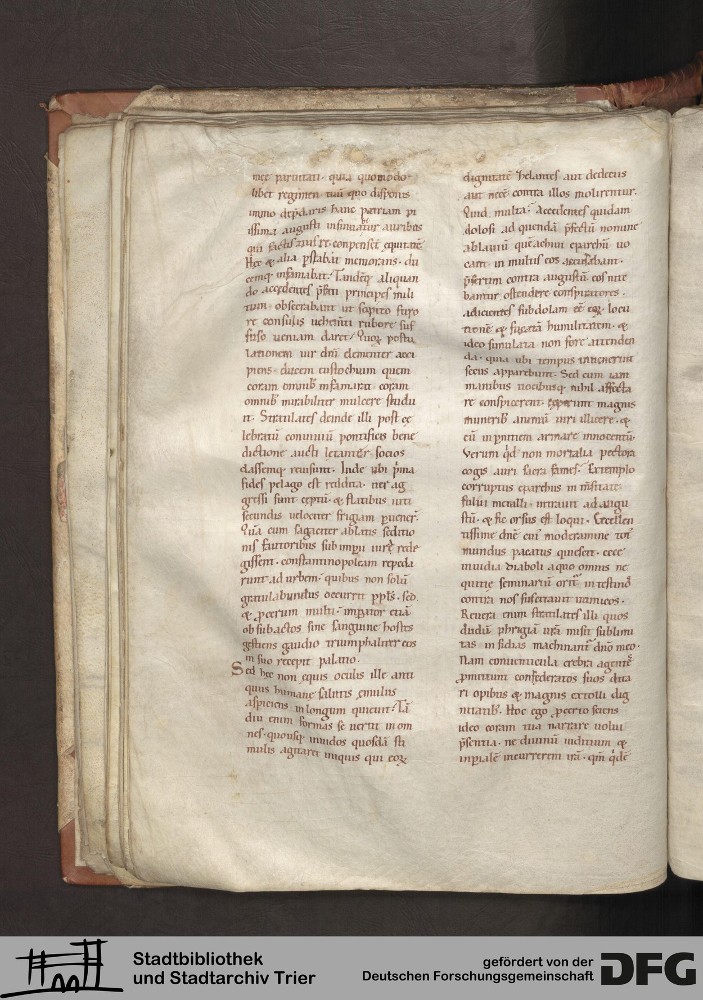 met paruitati · quia quomodo·
libet regimen tuū quo disponis
immo depdaris hanc patriam pi
issima augusti insinuatur auribus
Hec & alia p̄stabat memorans · du
cemq; infamabat · Tandēq; aliquan
do accedentes p̄bri principes mili
tum · obsecrabant ut sopito furo
re consulis uehem̄ti rubore suf
fuso ueniam daret · Quoꝝ postu
lationem uir dn̄i clementer acci
piens · ducem eustochium quem
coram omnibꝰ infamauit coram
omnibꝰ mirabiliter mulcere studu
it · Stratilates deinde illi post ce
lebratū conuiuiū pontificis bene
dictione aucti letanter socios
classemq; reuisunt · Inde ubi p̄ma
fides pelago est reddita · iter ag
gressi sunt ceptū · & flatibus uti
secundis uelociter frigiam
Quā cum sagaciter ablatis seditio
nis fautoribus sub impii iure rede
gissent · constantinopoleam repeda
runt ad urbem · quibus non solū
gratulabundus occurrit pplꝰ · sed
& procerum multi · imp̄ator etiā
ob subactos sine sanguine hostes
gestiens gaudio triumphaliter eos
in suo recepit palatio ·
Sed hec non equis oculis ille anti
quus humane salutis emulus
aspiciens in longum quieuit · Tā
diu enim formas se uertit in om
nes · quousq; mundos quosdā sti
mulis agitaret iniquis qui eoꝝ
dignitatē uelantes aut dedecus
aut necē contra illos molirentur ·
Quid multa · Accedentes quidam
dolosi ad quendā p̄fectū nomine
ablauiū quē achiui eparchū uo
cant · in multis eos accusabant ·
p̄sertim contra augustū eos nite
bantur ostendere conspiratores ·
adicientes subdolam eē eoꝝ locu
tionē & fucatā humilitatem · &
ideo simulata non fore attenden
da · quia ubi tempus inuenerint
secus apparebunt · Sed cum iam
manibus uocibusq; nihil affecta
re conspicerent · ceperunt magnis
muneribꝰ animū uiri illicere · &
eū in p̄niciem armare innocentū ·
Verum qd̄ non mortalia pectora
cogis auri sacra fames · Extemplo
corruptus eparchus in
fuluı metalli · intrauit ad augu
stū · & sic orsus est loqui · Excellen
tissime dn̄e cuiꝰ moderamine totꝰ
mundus pacatus quiescit · ecce
inuidia diaboli a quo omnis ne
quitie seminariū ortū intestinos
contra nos suscitauit inimicos ·
Reuera enim stratilates illi quos
dudū phrigiā ur̄a misit sublimi
tas in sidias machinant̄ dn̄o meo ·
Nam conuenticula crebra agentes
p̄mittunt confederatos suos dita
ri opibus & magnis extolli dig
nitatibꝰ · Hoc ego procerto sciens
ideo coram tua narrare uolui
p̄sentia · ne diuinū iudicium &
inp̄iale incurrerem irā · qm̄ qd̄ē
Stadtbibliothek
und Stadtarchiv Trier
gefördert von der
Deutschen Forschungsgemeinschaft
DFG